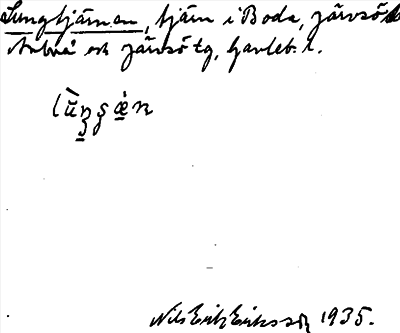 Lungtjärnen, tjärn i Boda, Järvsö
Arbrå och Järvsö tg, Gävleb. l.
Nils Erik Eriksson 1935.